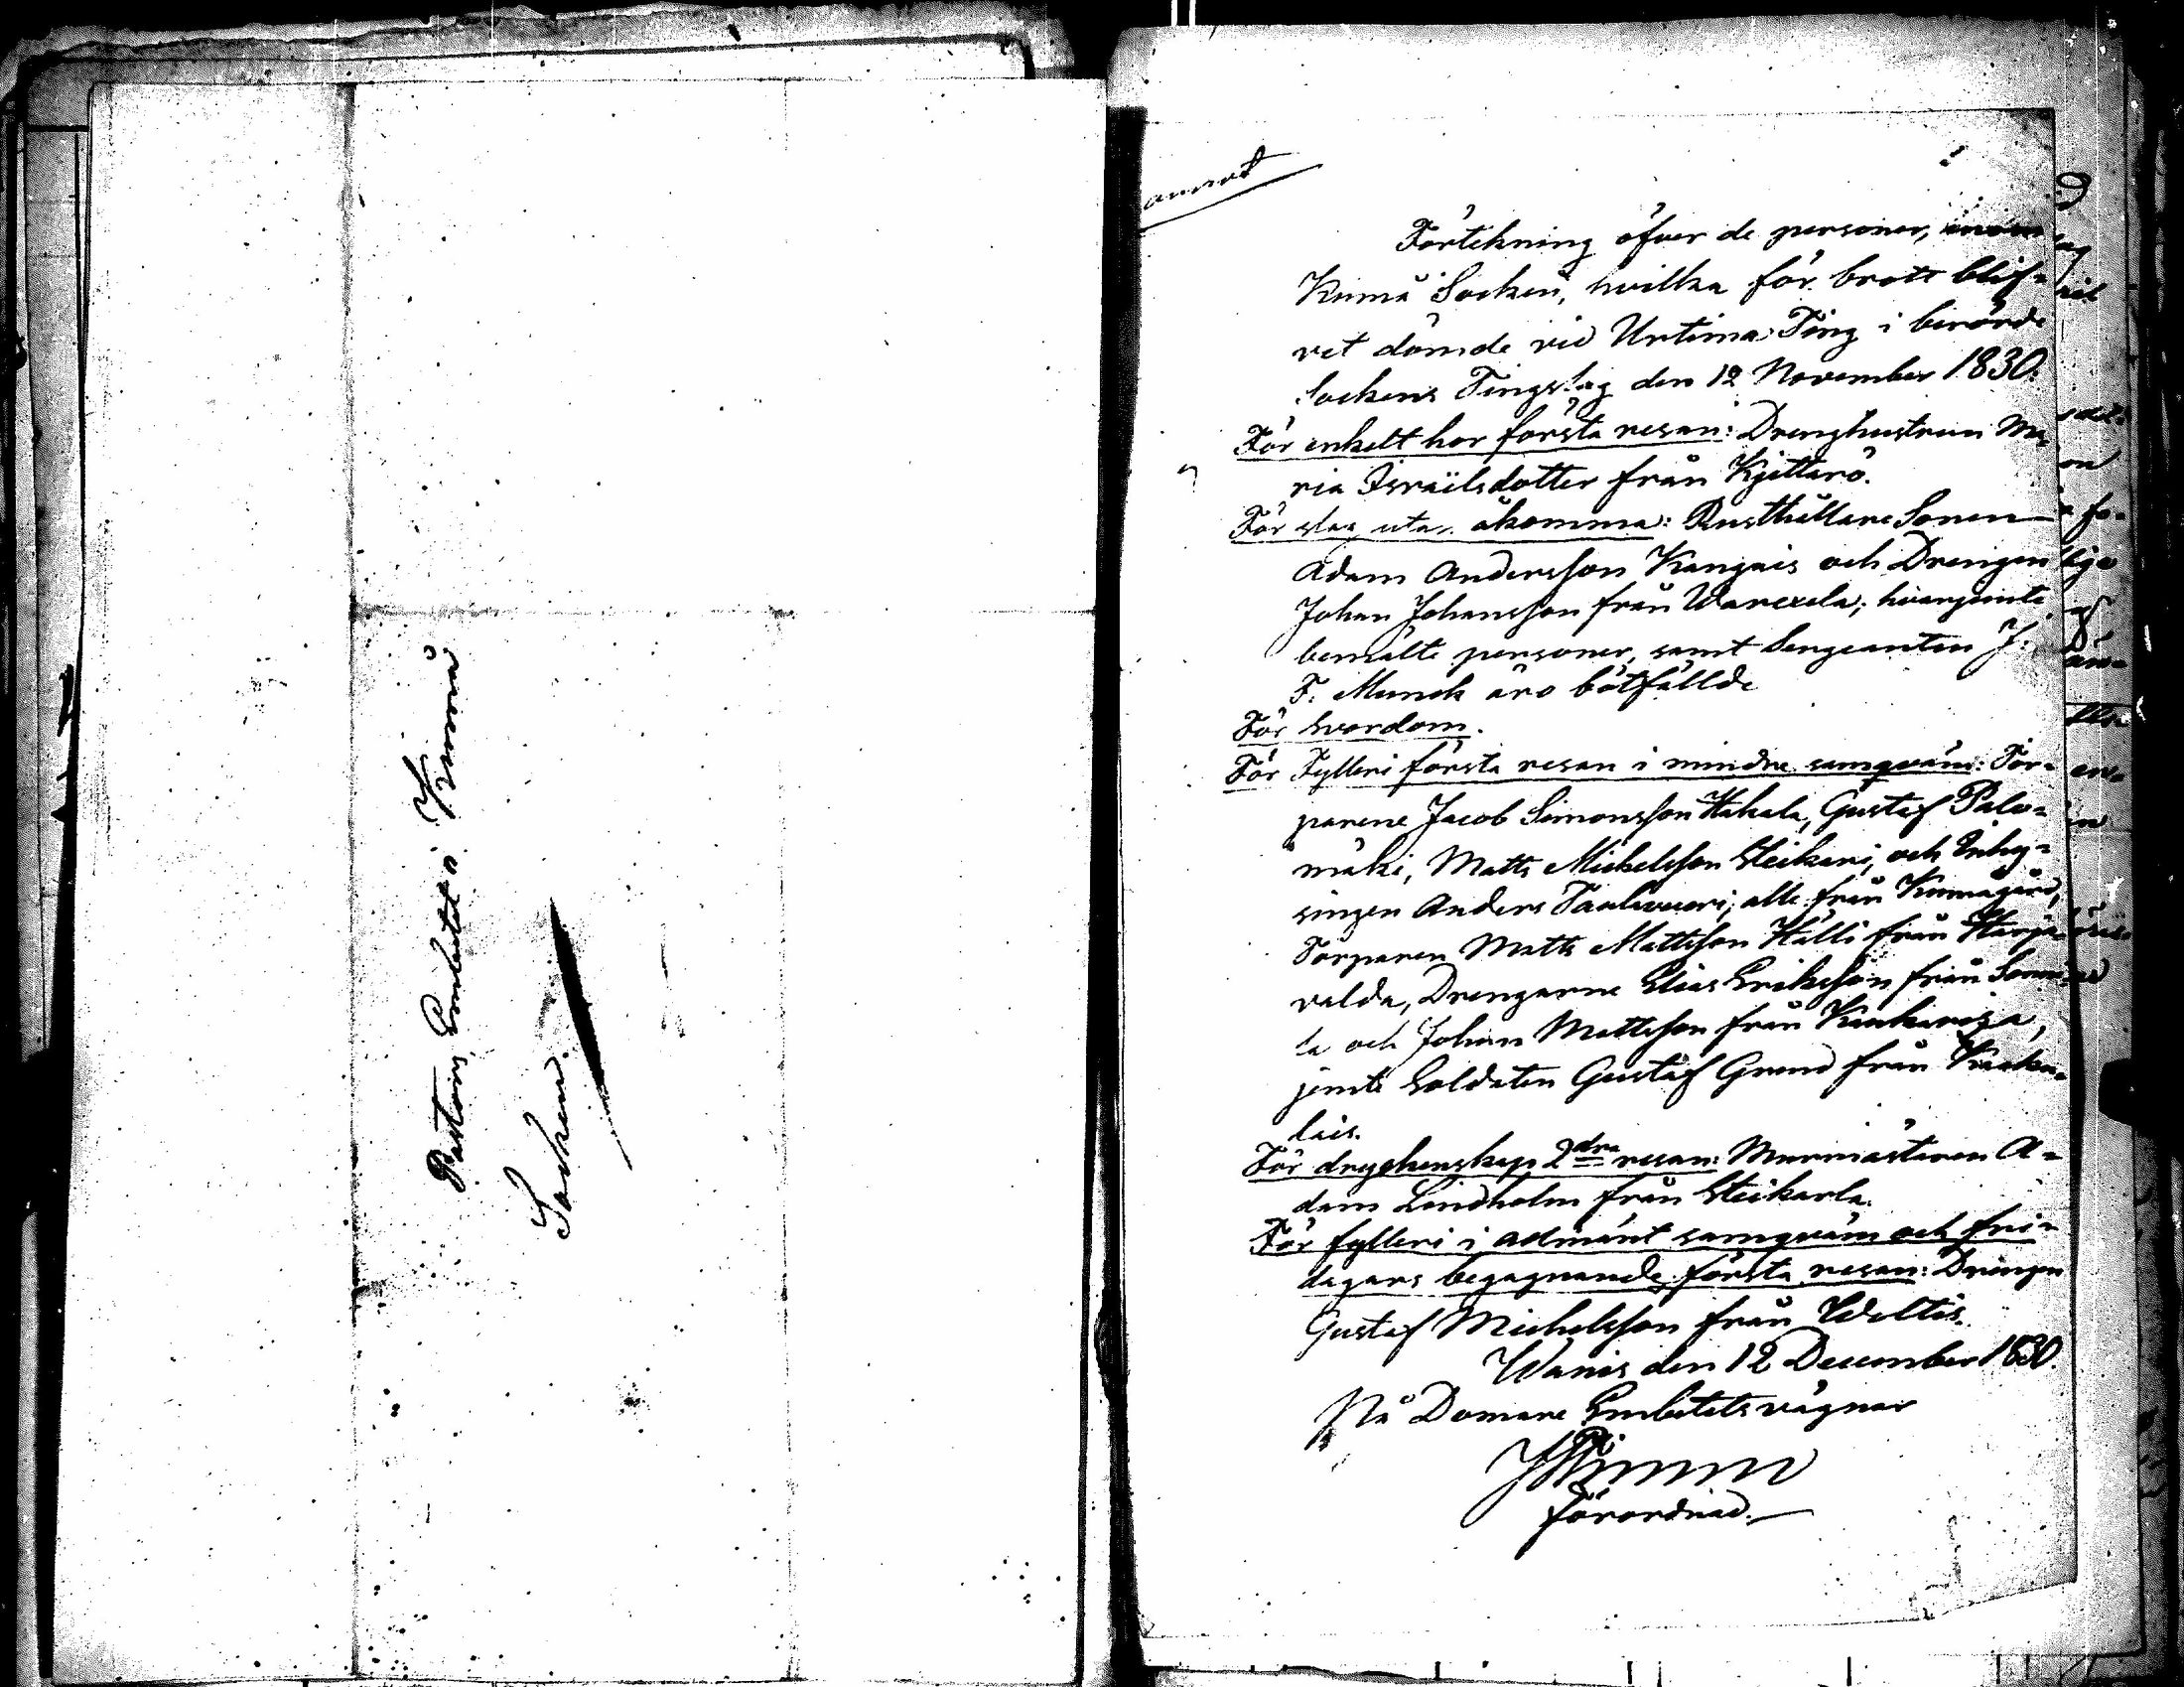 Pastors Embetet i Kumå
Socken.
Förtekning öfver de personer, inom
Kumå Socken, hvilka för brott blif-
vet dömde vid Urtima Ting i berörde
Sockens Tingslag den 12 November 1830.
För enkelt hor första resan: Drenghustrun Ma-
ria Israëlsdotter från Kjettarö.
För slag utan åkomma: Rusthållare Sonen
Adam Andersson Kangais och Drengen
Johan Johansson från Warexela; hvarjemte
bemälte personer, samt Sergeanten J:
F: Munck äro bötfällde
För svordom.
För Fylleri första resan i mindre samqväm: Tor-
parene Jacob Simonsson Hakala, Gustaf Palo-
mäki, Matts Michelsson Heikari, och Inhy-
singen Anders Taulavuori; alle från Kumogård,
Torparen Matts Mattsson Hälli från Harja-
valda, Drengarne Elias Eriksson från Somi
la och Johan Mattsson från Kaukaritza,
jemte Soldaten Gustaf Grund från Kaaku-
lais.
För dryckenskap 2dra resan: Murmästaren A-
dam Lindholm från Steikarla.
För fylleri i allmänt samqväm och fri-
dagars begagnande första resan: Drengen
Gustaf Michelsson från Weltis.
Wanis den 12 December 1830.
På Domare Embetets vägnar
förordnad.